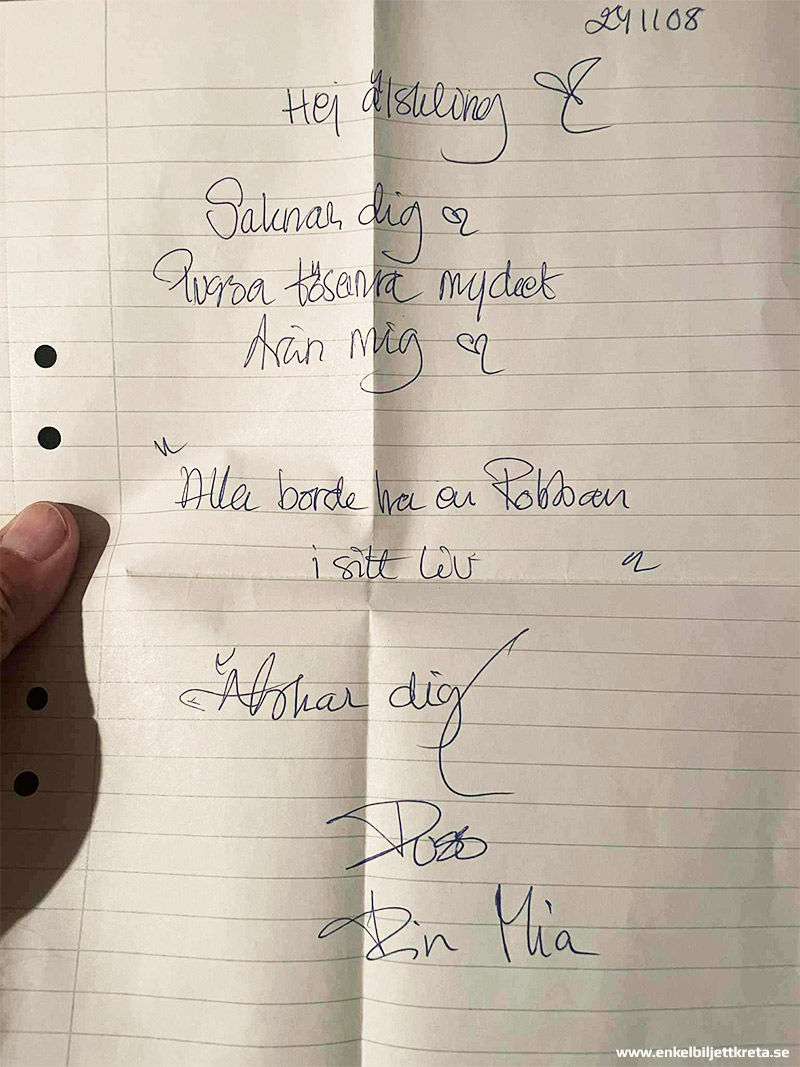 241108
Hej älskling
Saknar dig
Pussa töserna mycket
från mig
"Alla borde ha en Robban
i sitt liv "
Älskar dig
Puss
Din Mia
www.enkelbiljettkreta.se